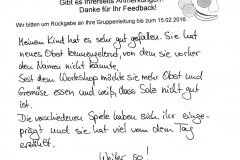 Gibt es Ihrerseits Anmerkungen?
Danke für Ihr Feedback!
Wir bitten um Rückgabe an Ihre Gruppenleitung bis zum 15.02.2016.
Meinem Kind hat es sehr gut gefallen. Sie hat
neues Obst kennengelernt, von dem sie vorher
den Namen nicht kannte.
Seit dem Workshop möchte sie mehr Obst und
Gemüse essen und weiß, dass Soße nicht gut
ist.
Die verschiedenen Spiele haben sich ihr einge-
prägt und sie hat viel vom dem Tag
erzählt.
Weiter so!